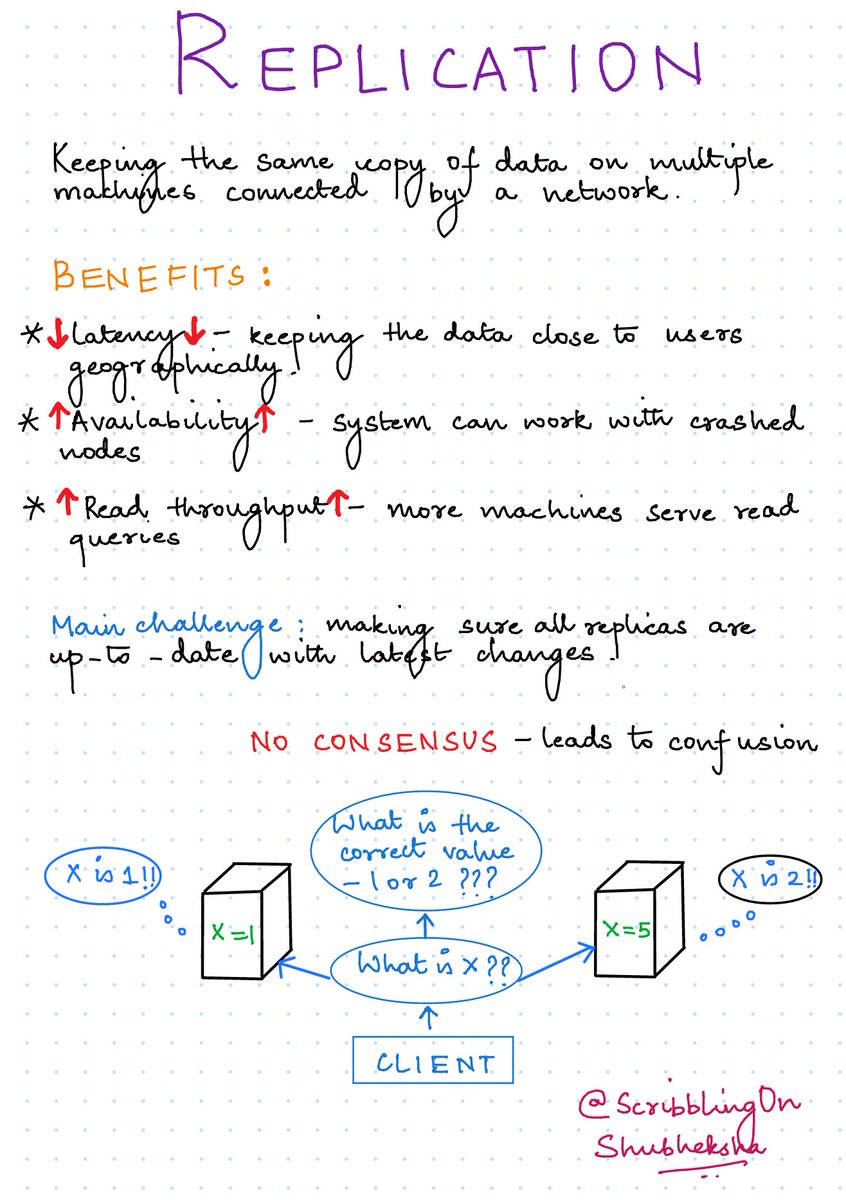 REPLICATION
Keeping the same copy of data on multiple
machines connected by a network.
BENEFITS :
* ↓Latency↓ - keeping the data close to users
geographically.
* ↑Availability↑ - system can work with crashed
nodes
* ↑Read throughput↑- more machines serve read
queries
Main challenge : making sure all replicas are
up-to-date with latest changes.
NO CONSENSUS - leads to confusion
What is the
correct value
- 1 or 2 ???
X is 1!!
X is 2!!
X =1
X=5
What is X??
CLIENT
@ScribblingOn
Shubheksha